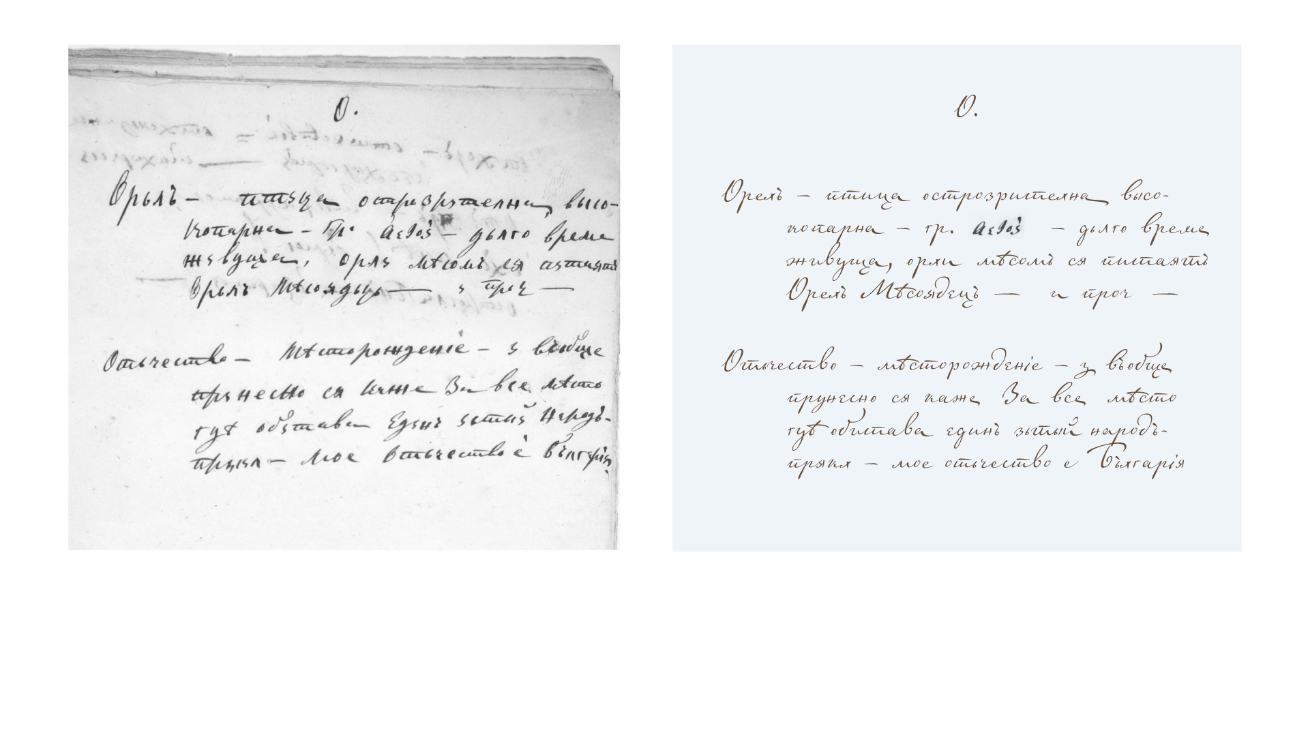 О.
Орьлъ — птица острозрителна, высо-
копарна — гр. ἀετός — дълго време
живуща, орли мѣсомъ ся питаятъ
Орьлъ Мѣсоядецъ — и проч —
Отьчество — Мѣсторожденіе — з въобще
принесно ся каже За все мѣсто
гдѣ обитава Единъ зытый Народъ-
прикл — мое Отьчество е Българія
О.
Орелъ — птица острозрителна высо-
копарна — гр. ἀετός — дълго време
живуща, орли мѣсомъ ся питаятъ
Орелъ Мѣсоядецъ — и проч —
Отьчество — мѣсторожденіе — з въобще
прунесно ся каже За все мѣсто
гдѣ обитава единъ зытый народъ-
прикл — мое отьчество е Българія